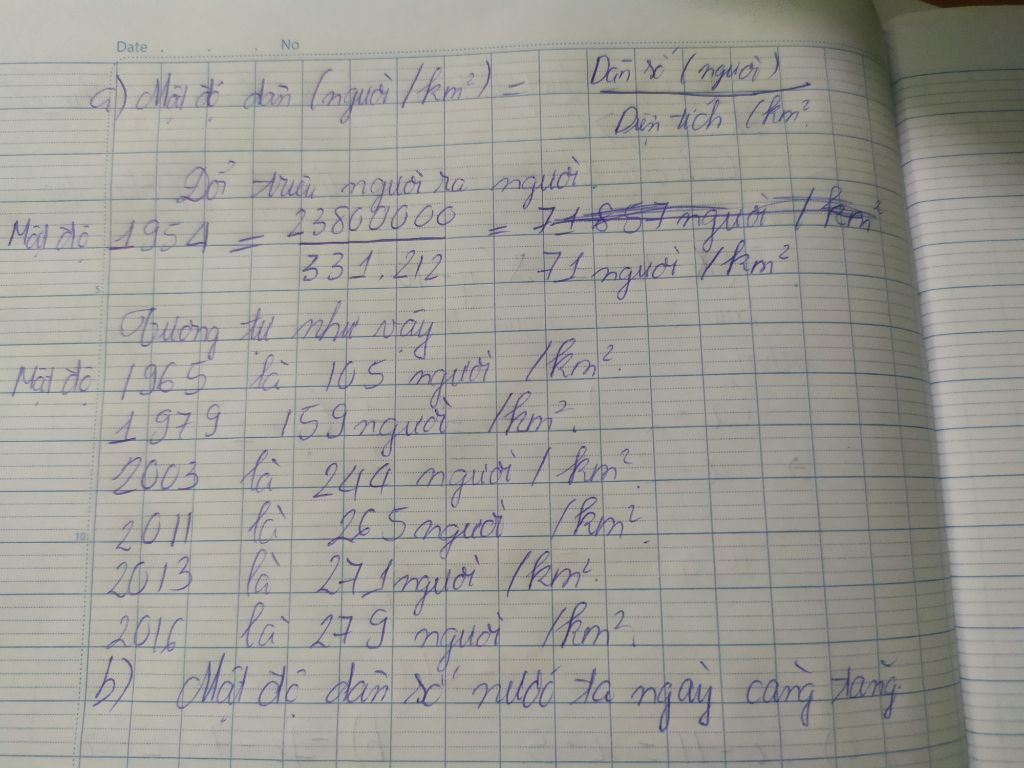 Date . . . . No
a) Mật độ dân (người /km²) = Dân số (người)
Diện tích (km²
Đổi triệu người ra người.
Mật độ 1954 = 23800000 = 71 857 người /km²
331.212 71 người /km²
Tương tự như vậy
Mật độ 1965 là 105 người /km².
1979 159 người /km².
2003 là 244 người / km².
2011 là 265 người /km².
10
2013 là 271 người /km².
2016 là 279 người /km².
b) Mật độ dân số nước ta ngày càng tăng